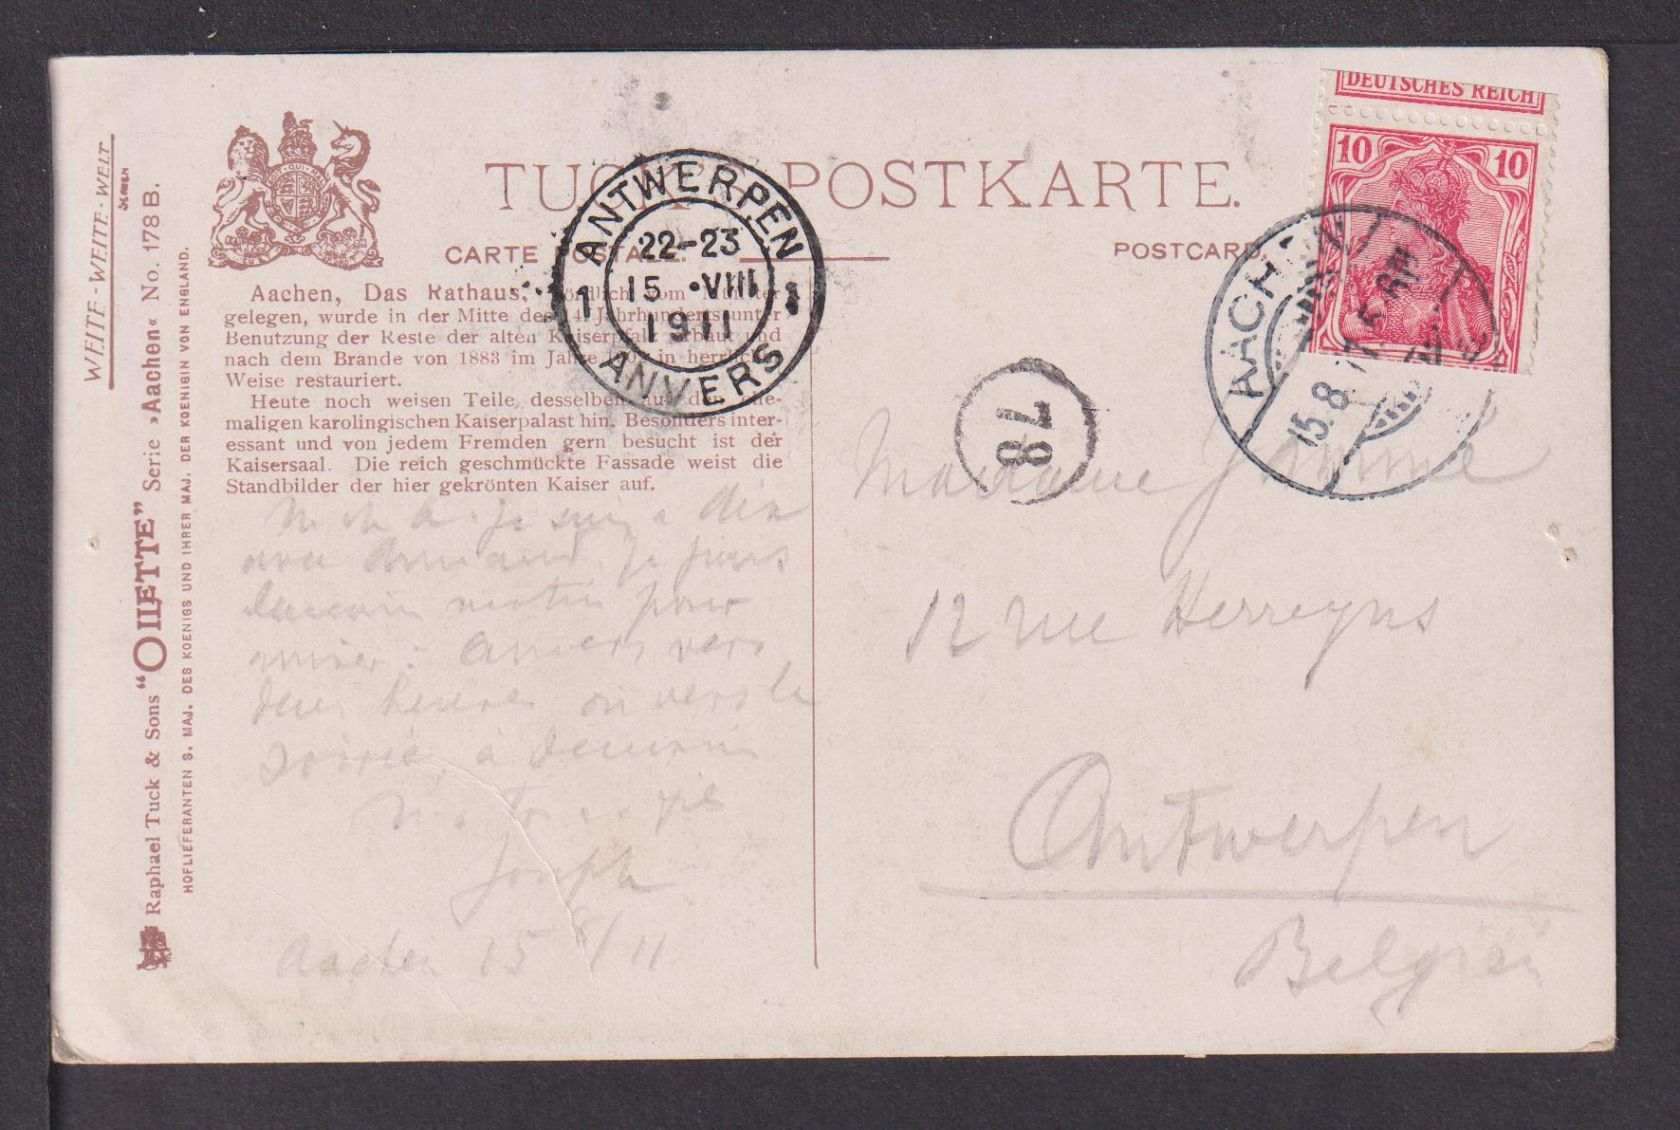 WEITE - WEITE - WELT
SERIEN
Raphael Tuck & Sons “OILETTE” Serie »Aachen« No. 178 B.
HOFLIEFERANTEN S. MAJ. DES KOENIGS UND IHRER MAJ. DER KOENIGIN VON ENGLAND.
POSTKARTE.
CARTE
POSTCARD
DEUTSCHES REICH
10 10
ANTWERPEN
22-23
1 15 •VIII 1
1911
ANVERS
78
AACHEN
15.8.11
Aachen, Das Rathaus, nördlich vom Münster
gelegen, wurde in der Mitte des 14. Jahrhunderts unter
Benutzung der Reste der alten Kaiserpfalz erbaut und
nach dem Brande von 1883 im Jahre in herrlicher
Weise restauriert.
Heute noch weisen Teile desselben auf den ehe-
maligen karolingischen Kaiserpalast hin. Besonders inter-
essant und von jedem Fremden gern besucht ist der
Kaisersaal. Die reich geschmückte Fassade weist die
Standbilder der hier gekrönten Kaiser auf.
je suis a
avec Armand. Je pars
demain matin pour
arriver à Anvers vers
deux heures ou vers la
soirée, à demain
Joseph
Aachen 15 8/11
Madame
12 rue Herreyns
Antwerpen
Belgien